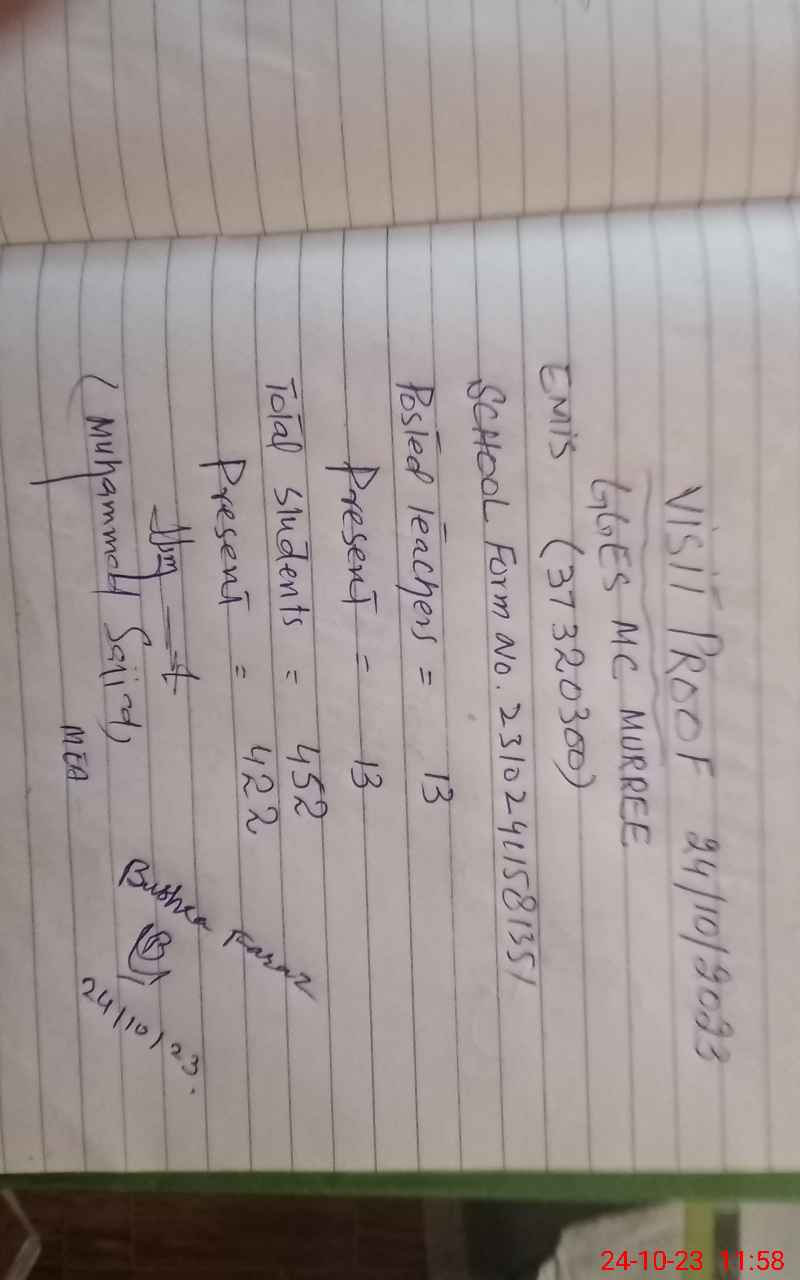 VISIT PROOF 24/10/2023
GGES MC MURREE
EMIS (37320300)
SCHOOL Form No. 23102411581351
Posted Teachers = 13
Present = 13
Total Students = 452
Present = 422
(Muhammad Sajjad)
MEA
Bushra
24/10/23.
24-10-23 11:58